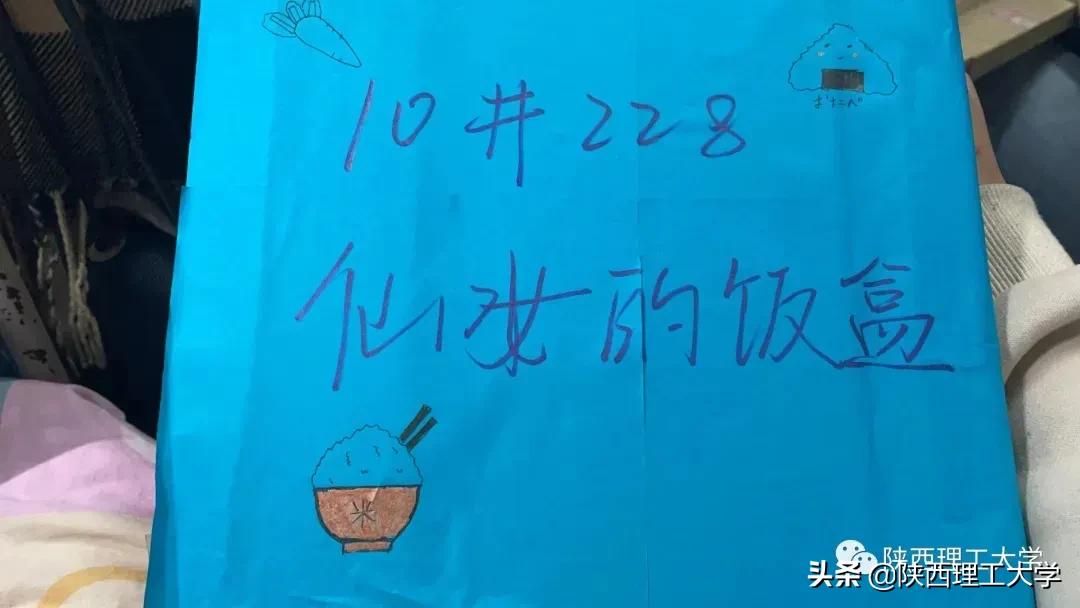 10井228
おたべ
仙女的饭盒
米
陕西理工大学
头条 @陕西理工大学